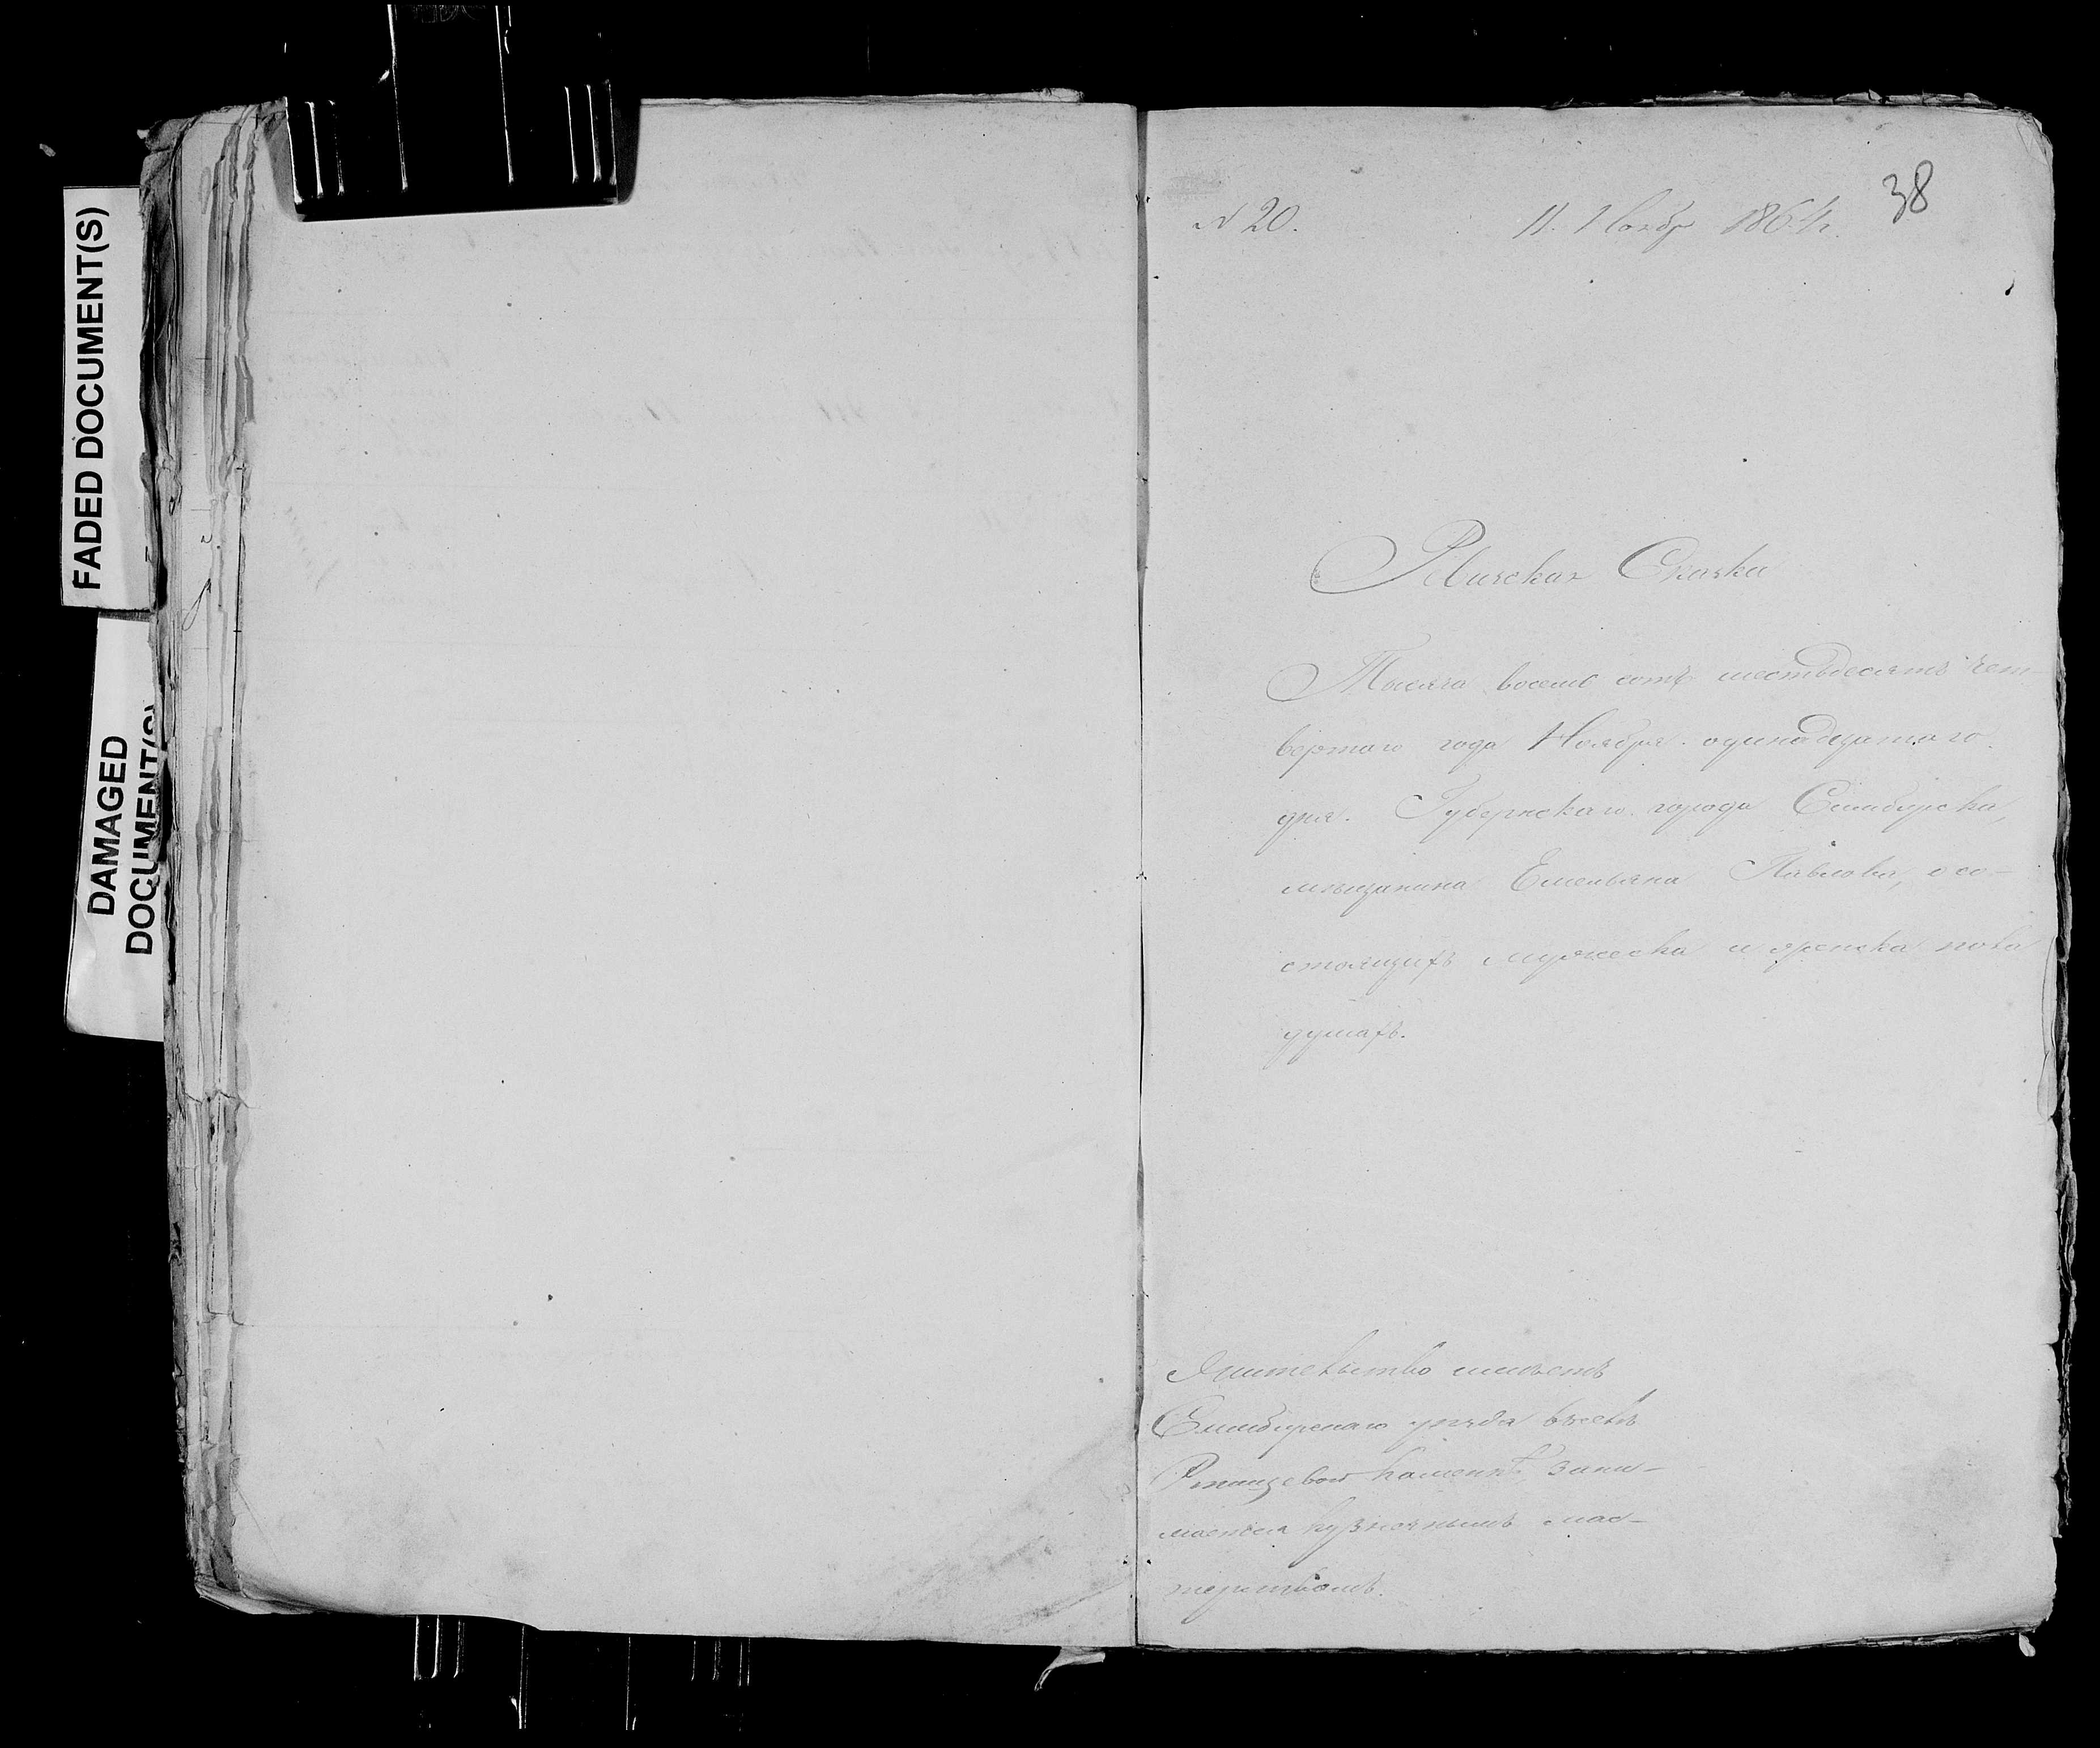 FADED DOCUMENT(S)
DAMAGED
DOCUMENT(S)
38
№ 20. 11. Ноябр 1864 г.
Ревизская Сказка
Тысяча восемь сотъ шестьдесятъ чет-
вертаго года Ноября одинадцатаго
дня. Губернскаго города Симбирска,
мѣщанина Емельяна Павлова, о со-
стоящихъ мужеска и женска пола
душахъ.
Жительство имѣетъ
Симбирскаго уѣзда въ селѣ
Ртищевой Каменкѣ, зани-
мается кузнечнымъ мас-
терствомъ.